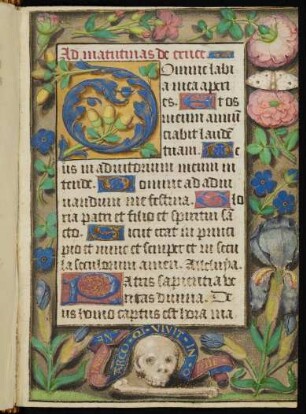 Ad matutinas de cruce
Domine labi
a mea aperi
es. Et os
meum annũ
ciabit laudẽ
tuam. De
us in adiutorium meum in
tende. Domine ad adiu
uandum me festina. Glo
ria patri et filio et spiritui sã
cto. Sicut erat in princi
pio et nunc et semper et in secu
la seculorum amen. Alleluya.
Patris sapientia ve
ritas diuina. De
us homo captus est hora ma